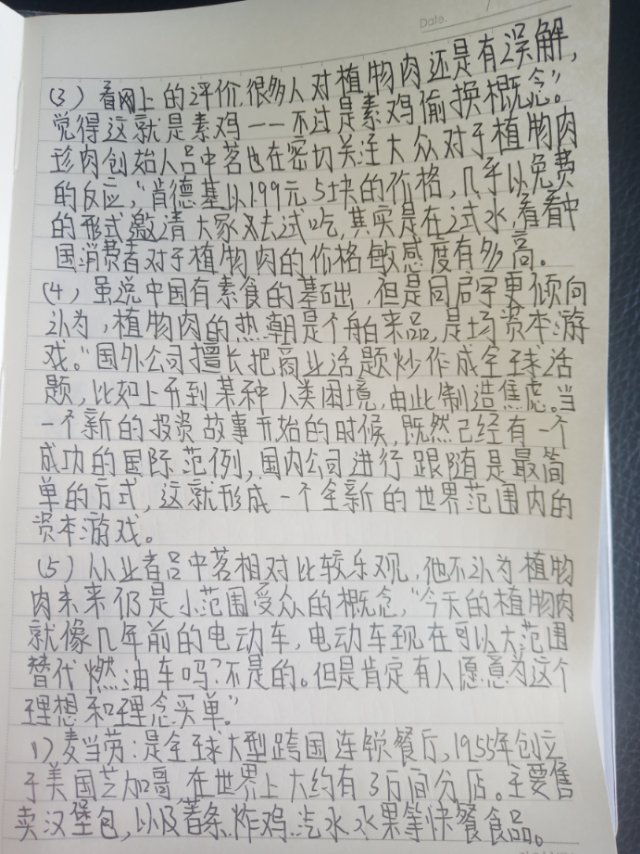 Date.
(3) 看网上的评价,很多人对植物肉还是有误解,
觉得这就是素鸡——不过是素鸡偷换概念"。
珍肉创始人吕中茗也在密切关注大众对于植物肉
的反应,"肯德基以1.99元5块的价格,几乎以免费
的形式邀请大家去试吃,其实是在试水,看看中
国消费者对于植物肉的价格敏感度有多高。
(4) 虽说中国有素食的基础,但是同启宇更倾向
认为,植物肉的热潮是个舶来品,是场资本游
戏。"国外公司擅长把商业话题炒作成全球话
题,比如上升到某种人类困境,由此制造焦虑。当
一个新的投资故事开始的时候,既然已经有一个
成功的国际范例,国内公司进行跟随是最简
单的方式,这就形成一个全新的世界范围内的
资本游戏。
(5) 从业者吕中茗相对比较乐观,他不认为植物
肉未来仍是小范围受众的概念,"今天的植物肉
就像几年前的电动车,电动车现在可以大范围
替代燃油车吗?不是的。但是肯定有人愿意为这个
理想和理念买单。"
1) 麦当劳:是全球大型跨国连锁餐厅,1955年创立
于美国芝加哥,在世界上大约有3万间分店。主要售
卖汉堡包,以及薯条、炸鸡、汽水、水果等快餐食品。